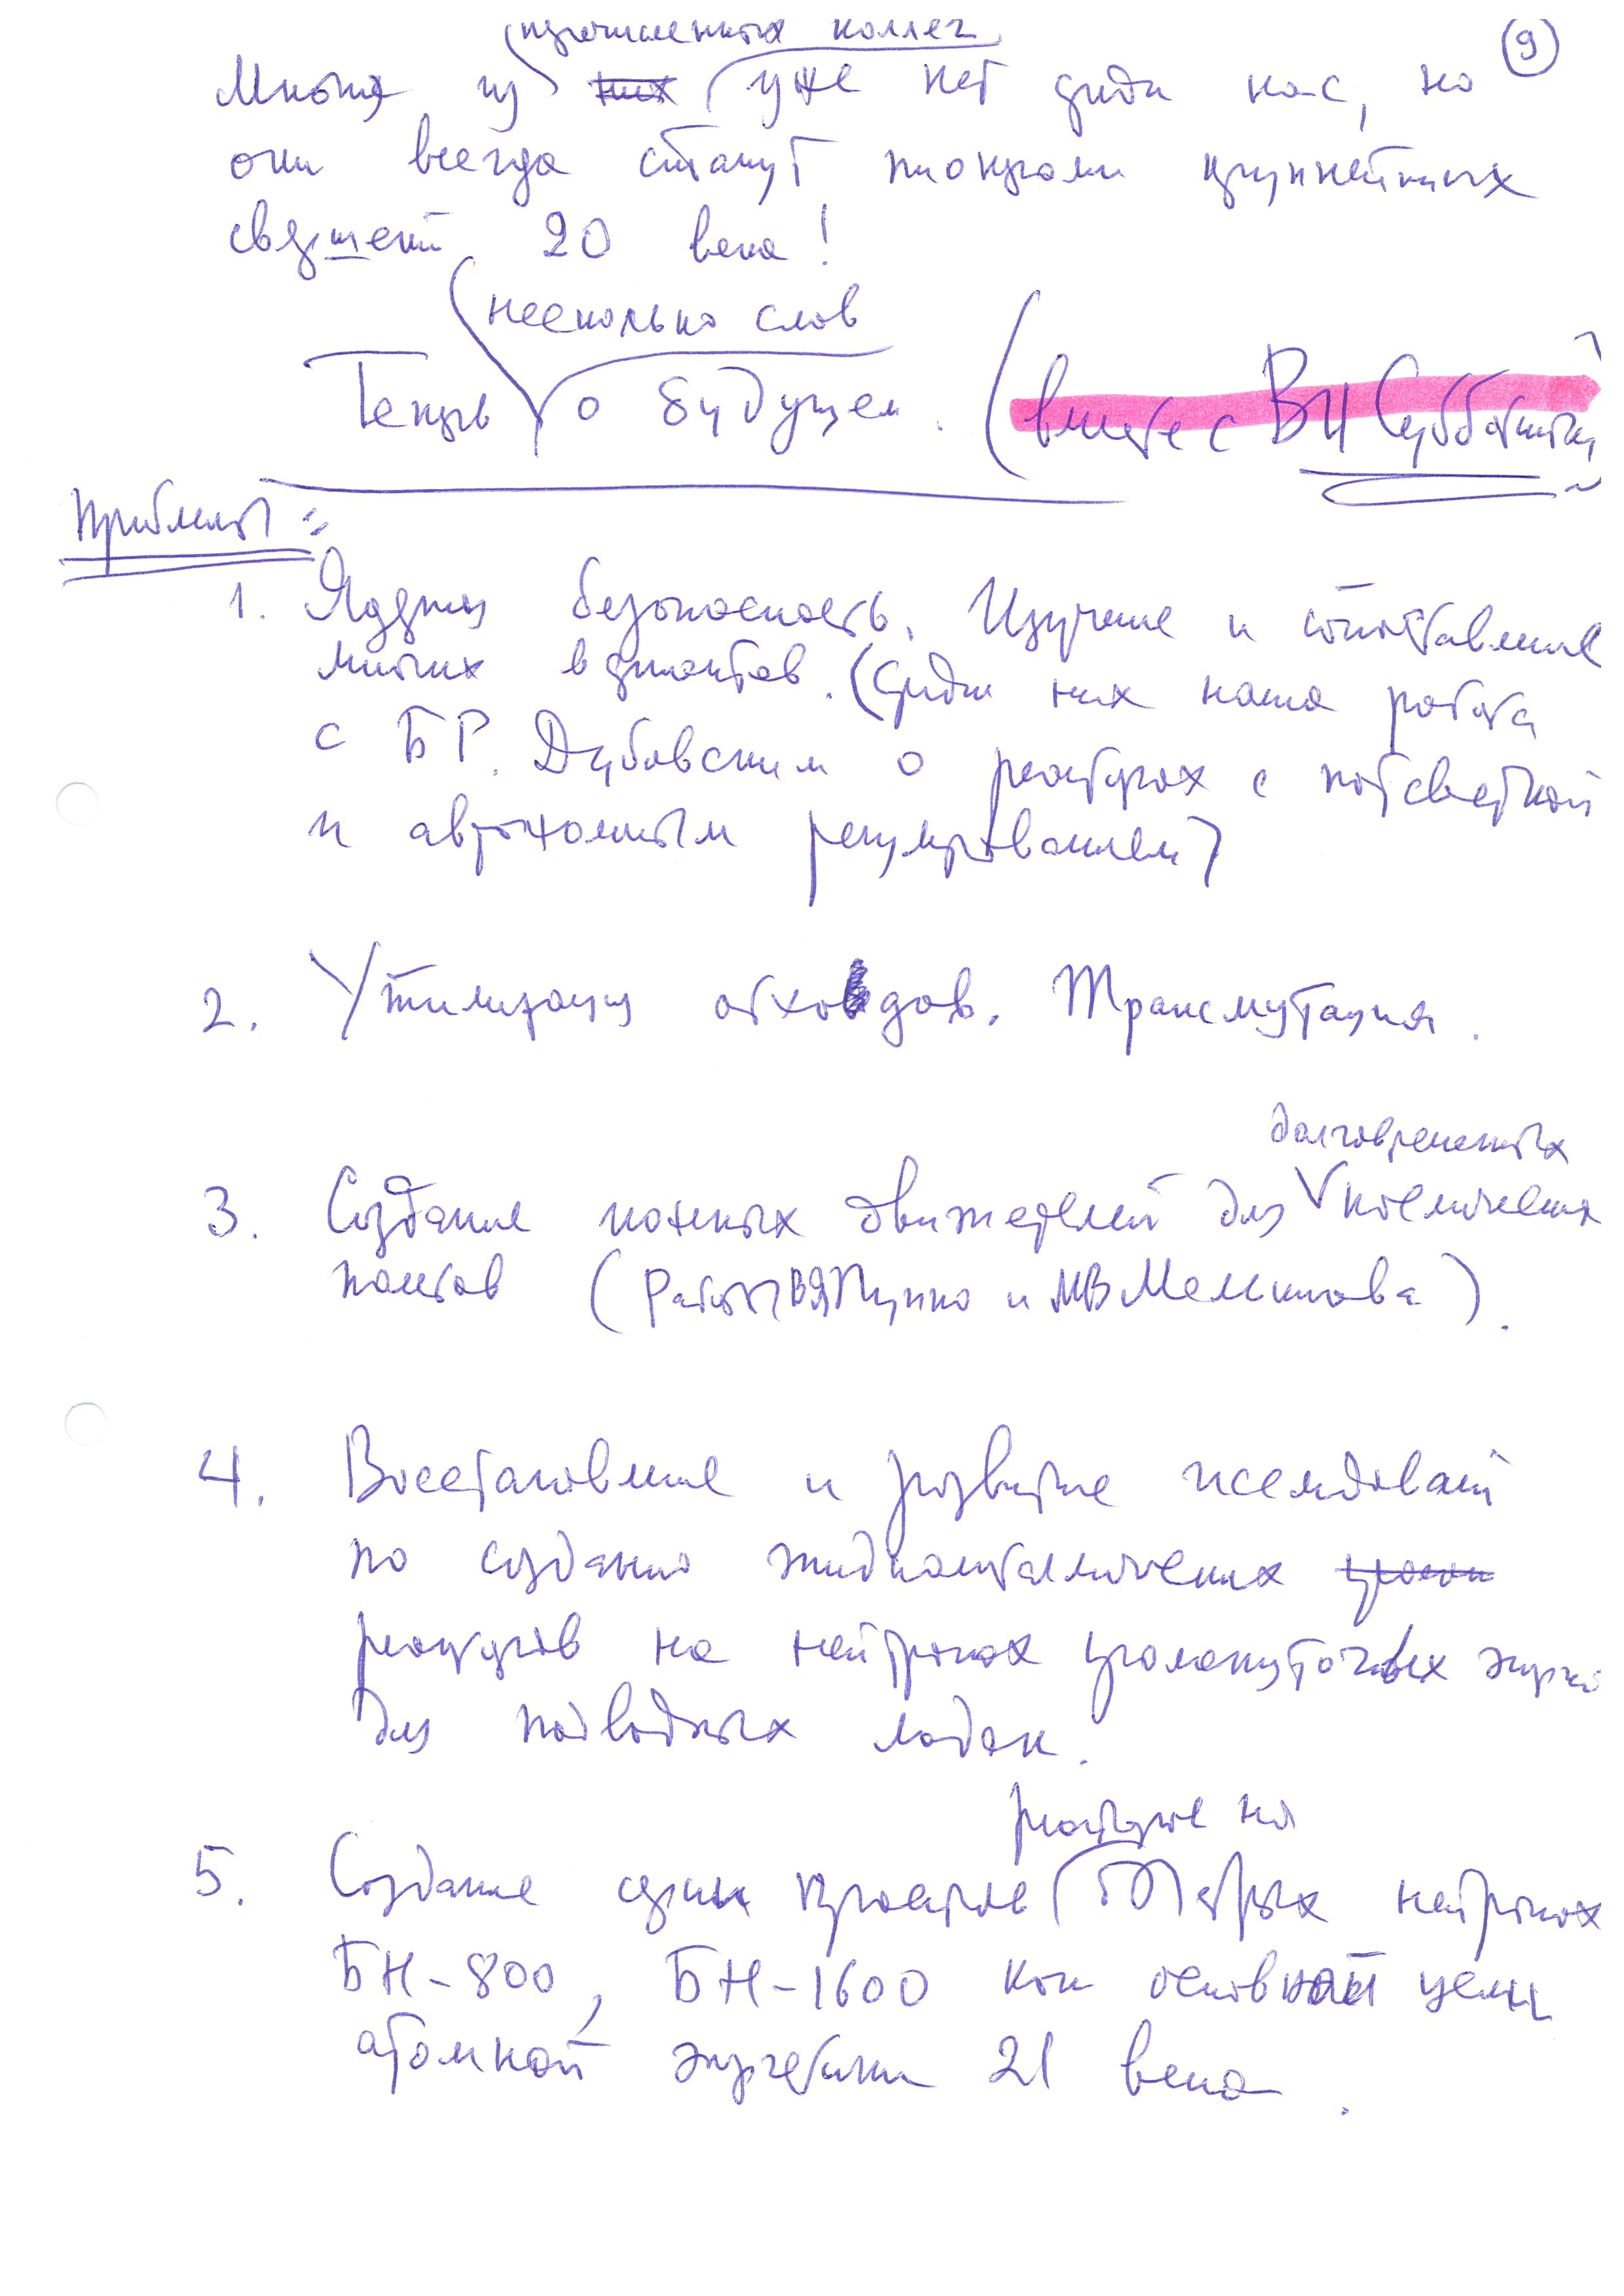 перечисленных коллег
9
Многих из них уже нет среди нас, но
они всегда станут пионерами крупнейших
свершений 20 века!
несколько слов
Теперь о будущем. (вместе с ВИ Субботиным)
Проблемы:
1. Ядерная безопасность. Изучение и сопоставление
многих вариантов. (Среди них наша работа
с Б Г. Дубовским о реакторах с подсветкой
и автономным регулированием)
2. Утилизация отходов. Трансмутация.
долговременных
3. Создание ионных движетелей для космических
полетов (Работы ВЯ Пупко и МВ Мельникова).
4. Восстановление и развитие исследований
по созданию жидкометаллических
реакторов на нейтронах промежуточных энергий
для подводных лодок.
реакторов на
5. Создание серии проектов быстрых нейтронах
БН-800, БН-1600 как основной цели
атомной энергетики 21 века.